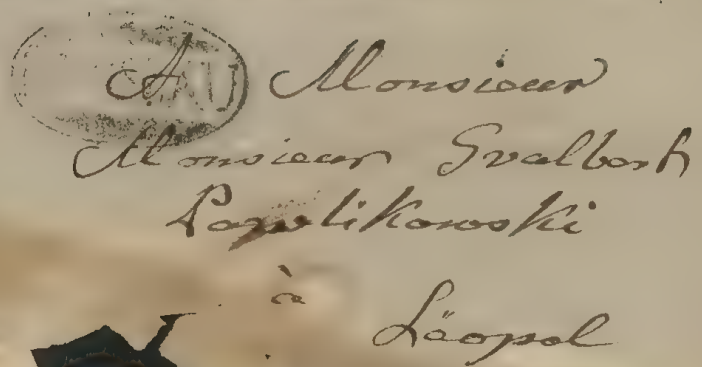 A Monsieur
Monsieur Gvalbert
Pawlikowski
à
Léopol